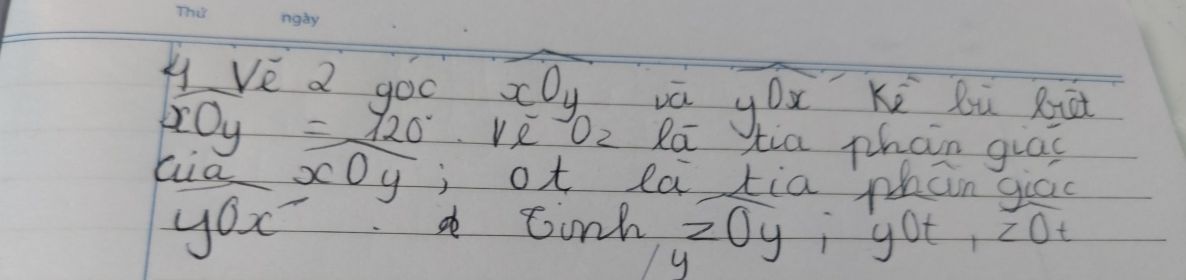 Thứ ngày
4 Vẽ 2 góc xOy và yOx' Kề bù biết
xOy = 120°. Vẽ Oz là tia phân giác
của xOy ; ot là tia phân giác
yOx' . tính zOy ; yOt , zOt
y